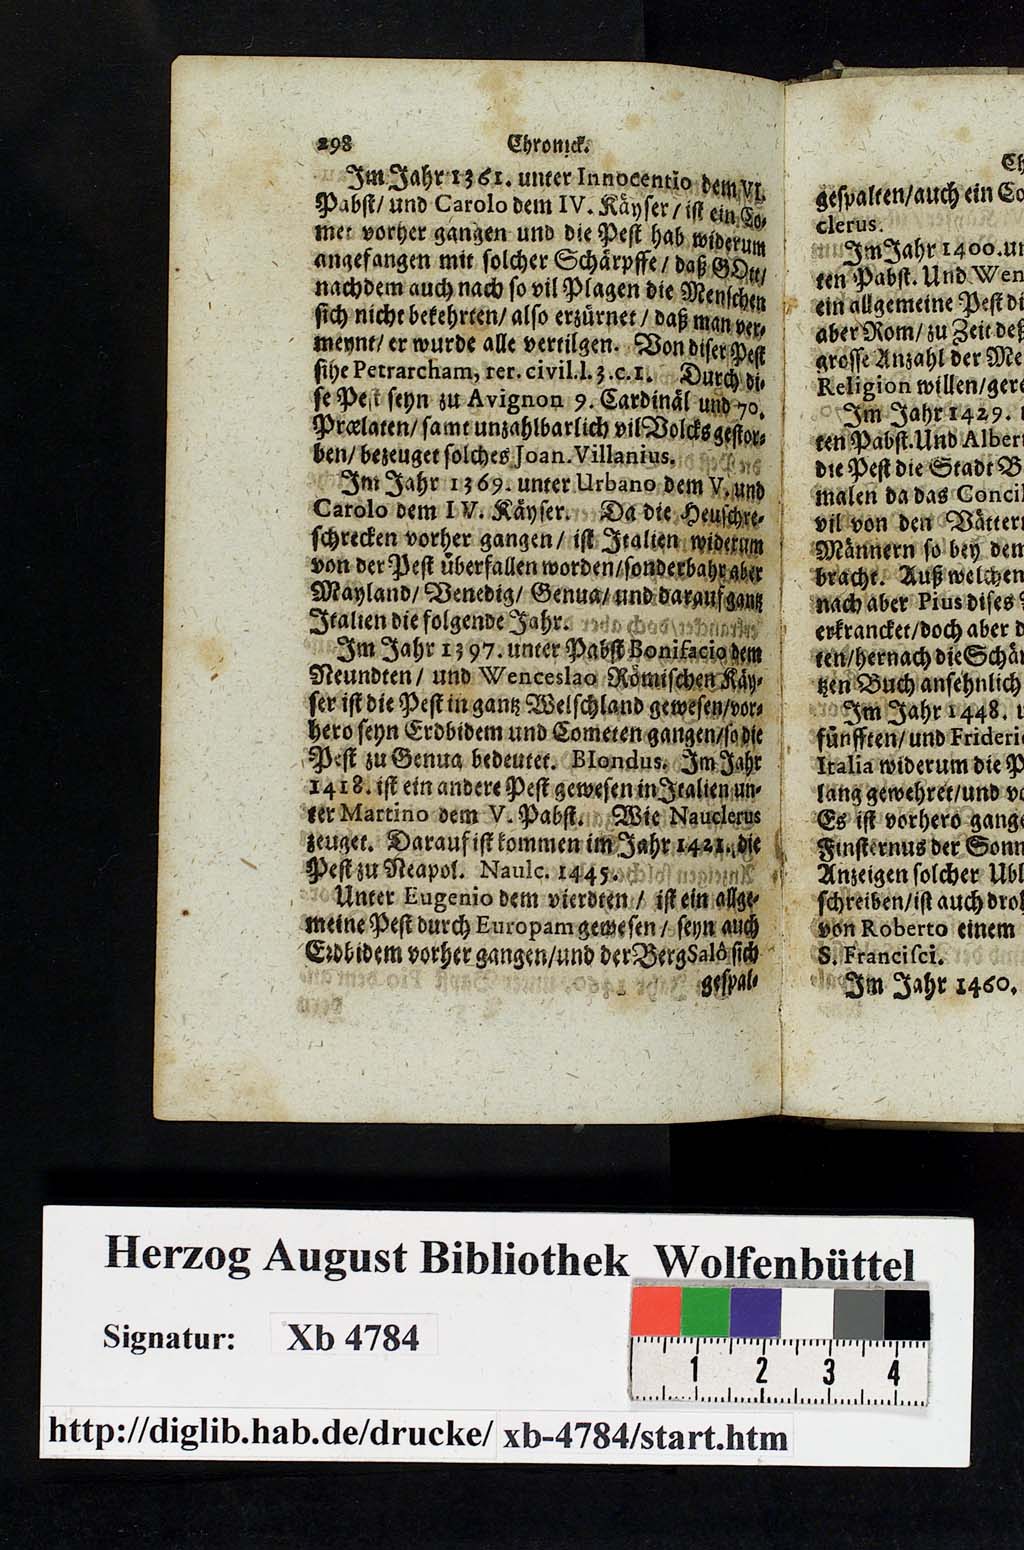 298 Chronick.
Im Jahr 1361. unter Innocentio dem VI.
Pabst/ und Carolo dem IV. Käyser/ ist ein Co-
met vorher gangen und die Pest hab widerum
angefangen mit solcher Schärpffe/ daß GOtt/
nachdem auch nach so vil Plagen die Menschen
sich nicht bekehrten/ also erzürnet/ daß man ver-
meynt/ er wurde alle vertilgen. Von diser Pest
sihe Petrarcham, rer. civil. l. 3. c. 1. Durch di-
se Pest seyn zu Avignon 9. Cardinäl und 70.
Prælaten/ samt unzahlbarlich vil Volcks gestor-
ben/ bezeuget solches Joan. Villanius.
Im Jahr 1369. unter Urbano dem V. und
Carolo dem IV. Käyser. Da die Heuschre-
schrecken vorher gangen/ ist Italien widerum
von der Pest überfallen worden/ sonderbahr aber
Mayland/ Venedig/ Genua/ und darauf gantz
Italien die folgende Jahr.
Im Jahr 1397. unter Pabst Bonifacio dem
Neundten/ und Wenceslao Römischen Käy-
ser ist die Pest in gantz Welschland gewesen/ vor-
hero seyn Erdbidem und Cometen gangen/ so die
Pest zu Genua bedeutet. Blondus. Im Jahr
1418. ist ein andere Pest gewesen in Italien un-
ter Martino dem V. Pabst. Wie Nauclerus
zeuget. Darauf ist kommen im Jahr 1421. die
Pest zu Neapol. Naulc. 1445.
Unter Eugenio dem vierdten/ ist ein allge-
meine Pest durch Europam gewesen/ seyn auch
Erdbidem vorher gangen/ und der Berg Salô sich
gespal-
Ch
gespalten/ auch ein Co
clerus.
Im Jahr 1400. un
ten Pabst. Und Wen
ein allgemeine Pest di
aber Rom/ zu Zeit deß
grosse Anzahl der Me
Religion willen/ gere
Im Jahr 1429. u
ten Pabst. Und Albert
die Pest die Stadt B
malen da das Concil
vil von den Vätter
Männern so bey dem
bracht. Auß welchen
nach aber Pius dises
erkrancket/ doch aber d
ten/ hernach die Schär
tzen Buch ansehnlich
Im Jahr 1448. u
fünfften/ und Frideri
Italia widerum die P
lang gewehret/ und vo
Es ist vorhero gange
Finsternus der Sonn
Anzeigen solcher Ubl
schreiben/ ist auch droh
von Roberto einem
S. Francisci.
Im Jahr 1460.
Herzog August Bibliothek Wolfenbüttel
Signatur: Xb 4784
1 2 3 4
http://diglib.hab.de/drucke/ xb-4784/start.htm